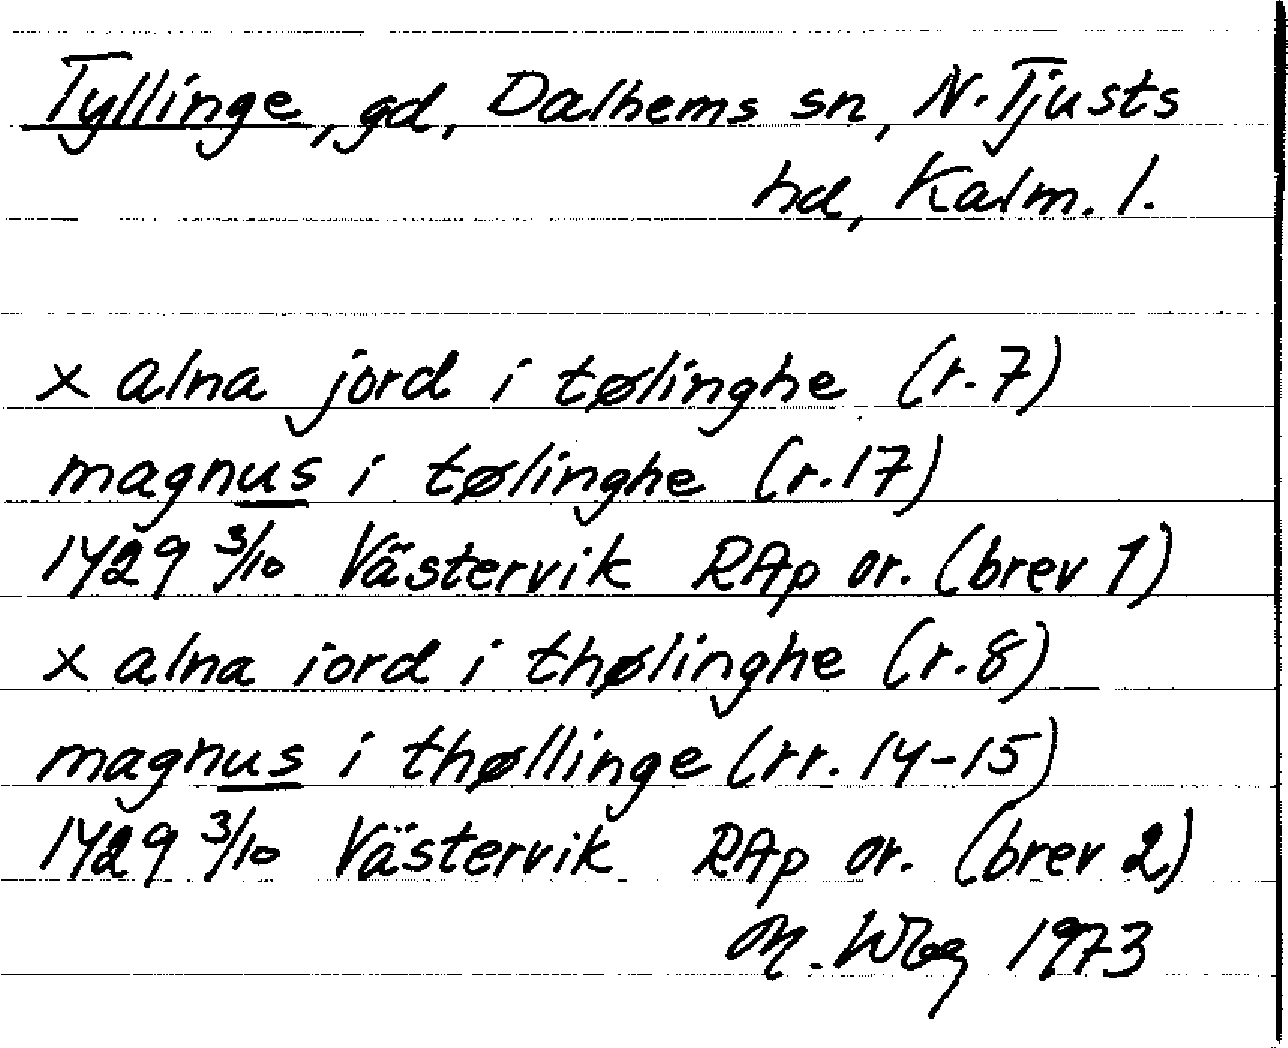 Tyllinge, gd, Dalhems sn, N. Tjusts
hd, Kalm. l.
x alna jord i tølinghe (r. 7)
magnus i tølinghe (r. 17)
1429 3/10 Västervik RAp or. (brev 1)
x alna iord i thølinghe (r. 8)
magnus i thøllinge (rr. 14-15)
1429 3/10 Västervik RAp or. (brev 2)
M. Wbg 1973